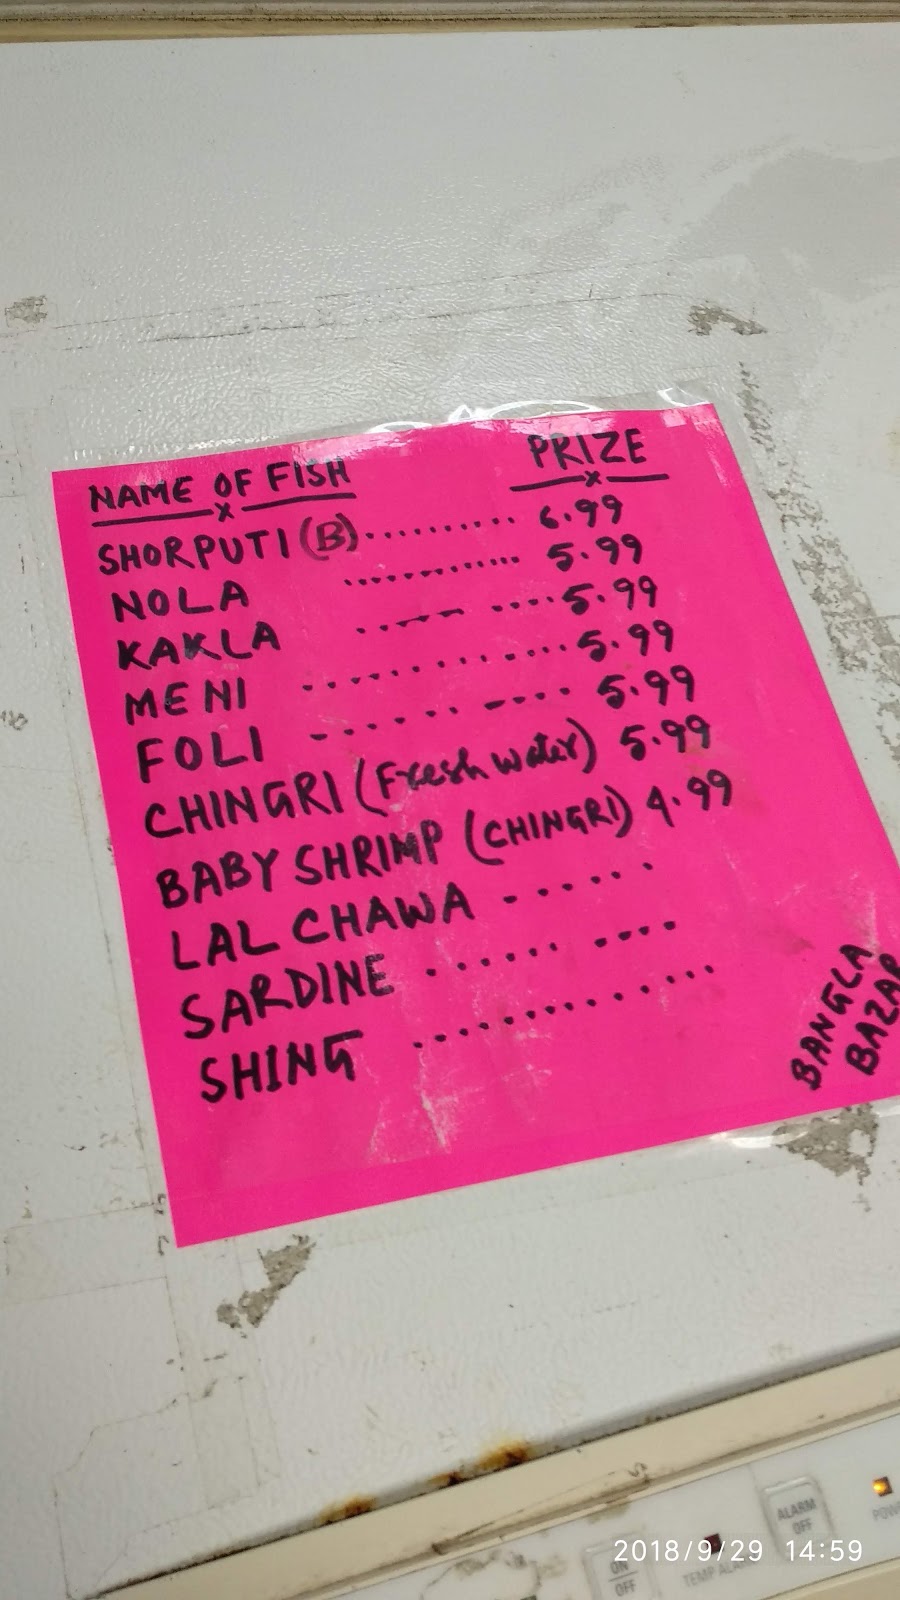 NAME OF FISH PRIZE
x x
SHORPUTI (B).......... 6.99
NOLA ............. 5.99
KAKLA .---- .... 5.99
MENI ............. 5.99
FOLI ...... ---.... 5.99
CHINGRI (Fresh water) 5.99
BABY SHRIMP (CHINGRI) 4.99
LAL CHAWA ......
SARDINE ...... ....
SHING .............
BANGLA
BAZAR
ALARM
OFF
ON
OFF
TEMP ALA
POW
2018/9/29 14:59